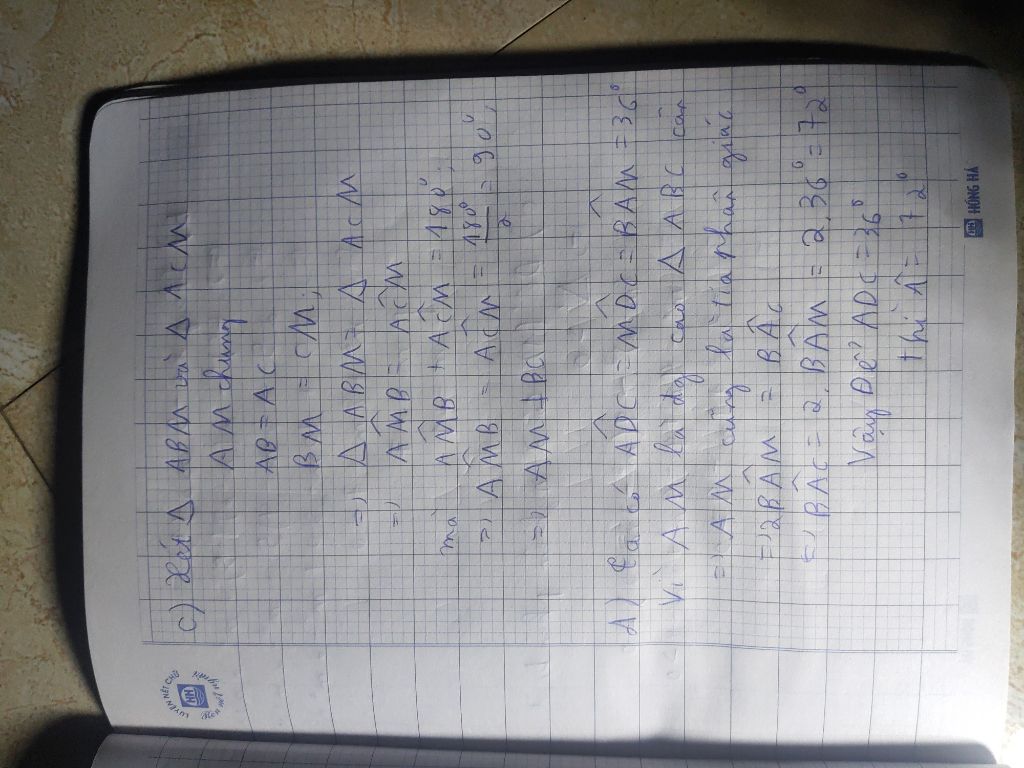 c) Xét Δ ABM và Δ ACM
AM chung
AB = AC
BM = CM;
=> Δ ABM = Δ ACM
=> AM̂B = AĈM
mà AM̂B + AĈM = 180°;
=> AM̂B = AĈM = 180°/2 = 90°;
=> AM ⊥ BC
d) Ta có AD̂C = MD̂C = BÂM = 36°
Vì AM là đg cao Δ ABC cân
=> AM cũng là tia phân giác
=> 2BÂM = BÂC
=> BÂC = 2. BÂM = 2. 36° = 72°
Vậy Để ADC = 36°
thì Â = 72°
LUYỆN NÉT CHỮ
HỒNG HÀ